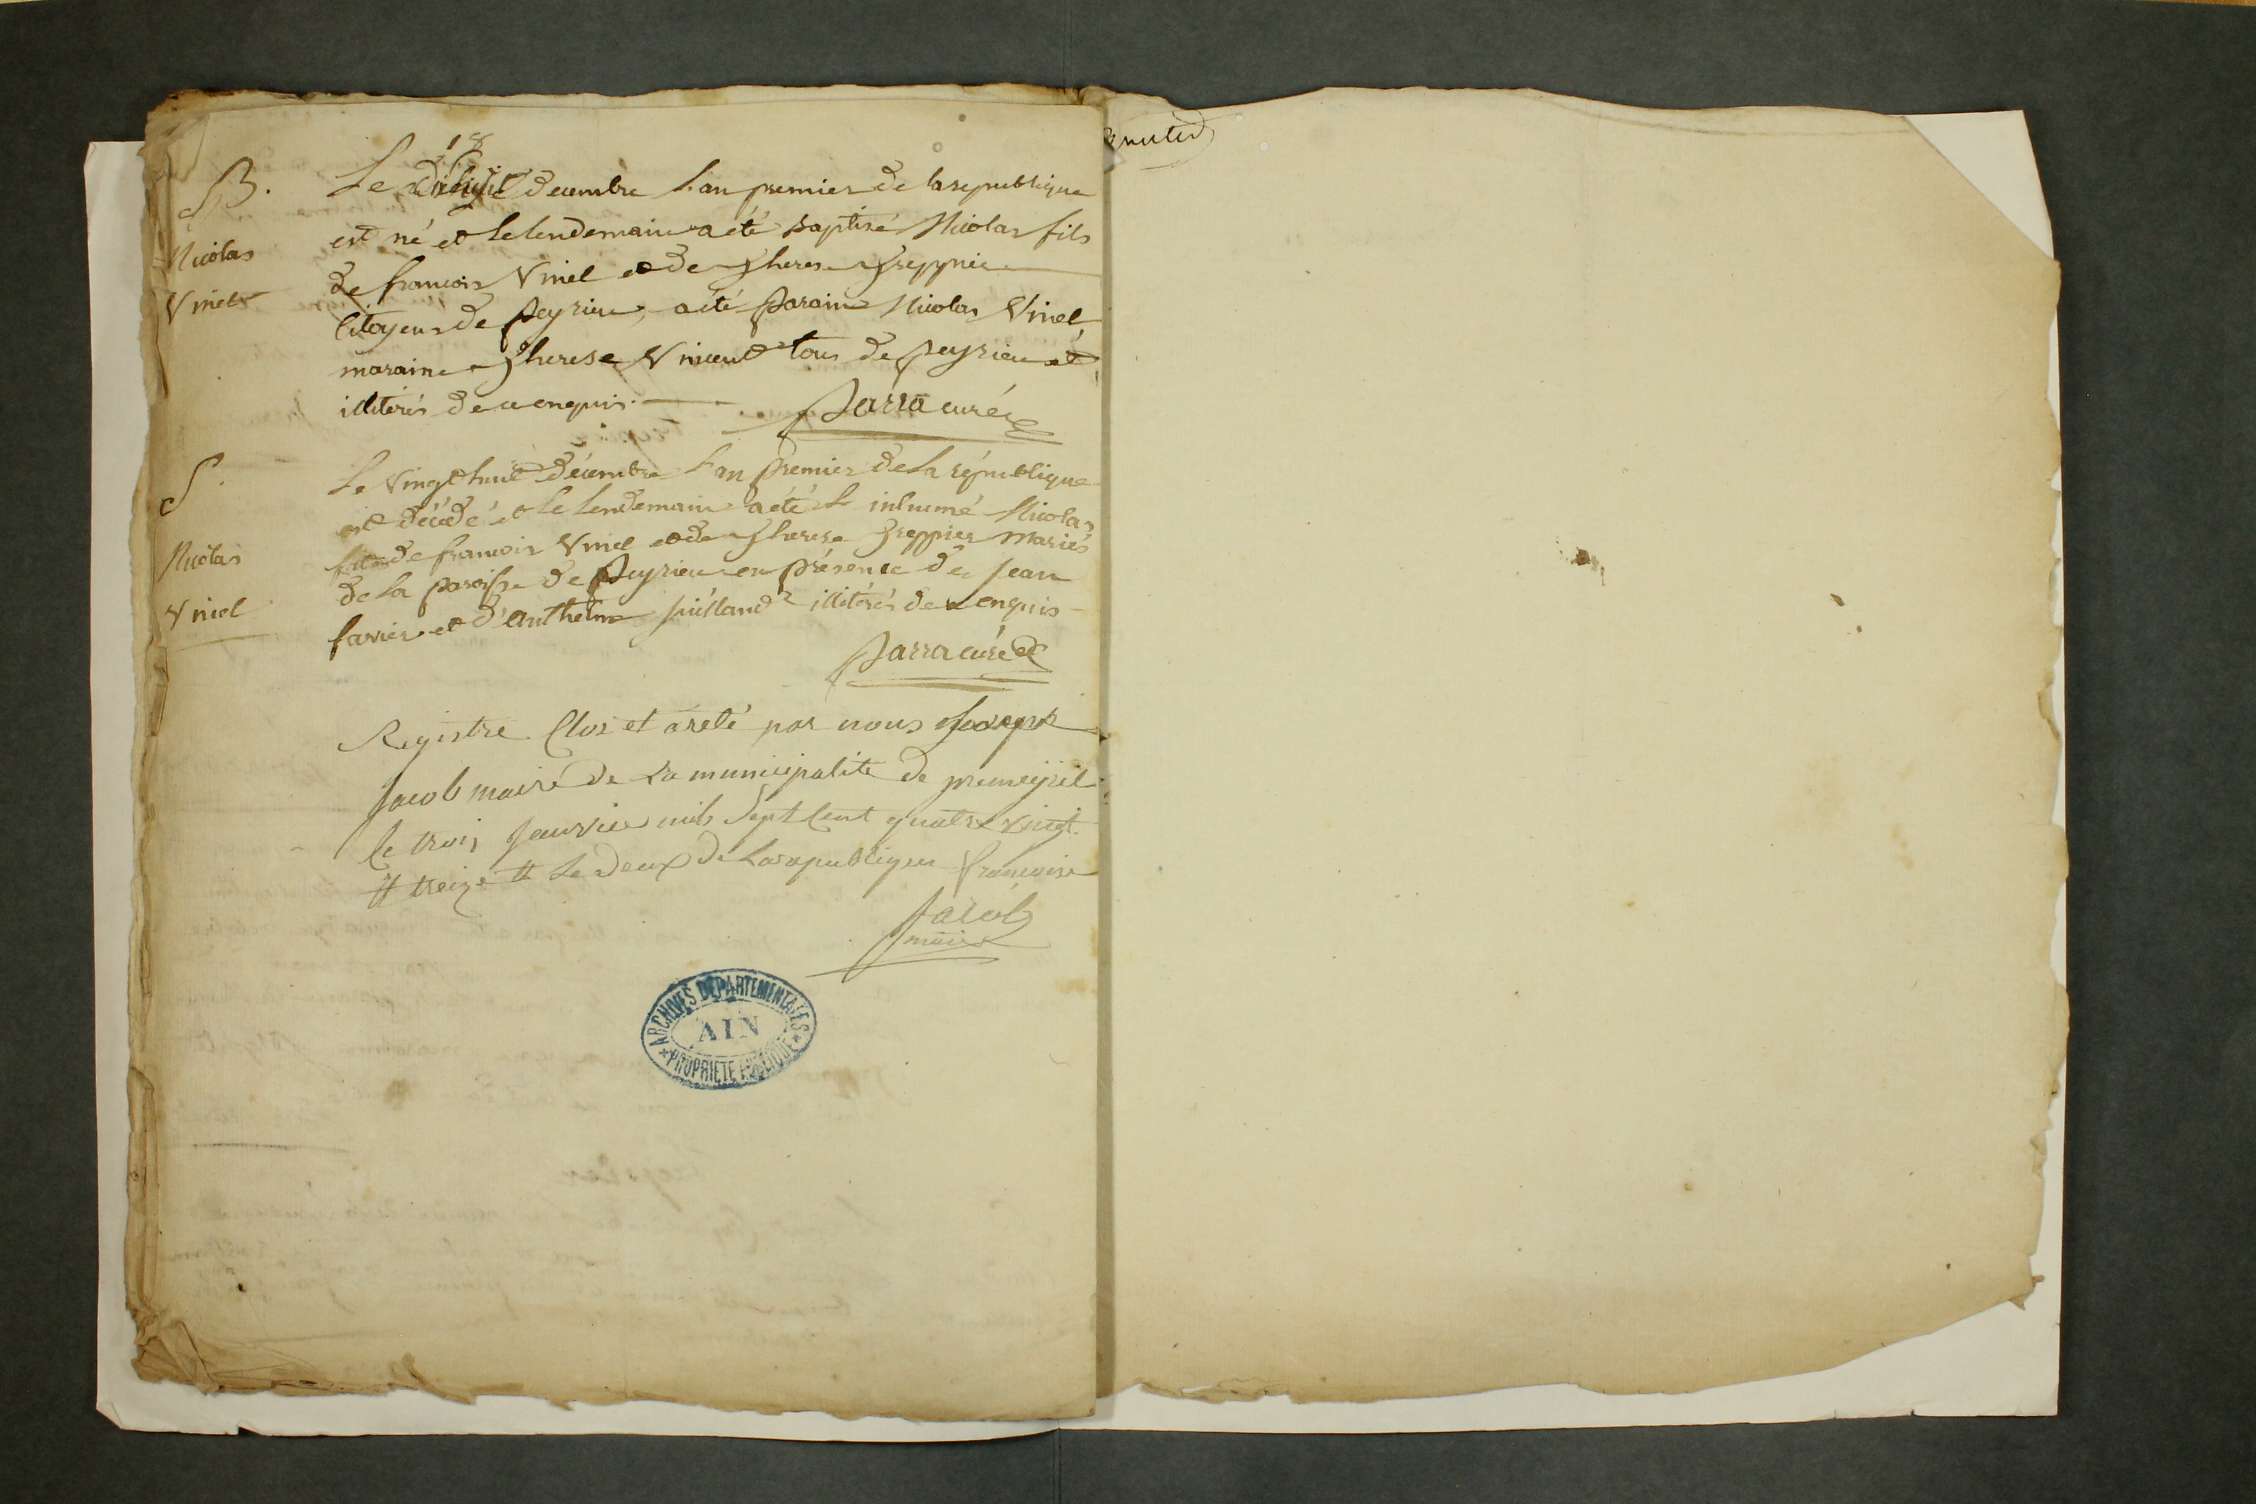 B.
Nicolas
Vinel
18
Le decembre L'an premier de la republique
est né et le lendemain a été baptisé Nicolas fils
de francois Vinel et de therese greppier
Citoyens de peyrieu, a été parain Nicolas Vinel,
maraine therese Vincent tous de peyrieu et
illiterés de ce enquis.
parra curé
S.
Nicolas
Vinel
Le vingt huit décembre L'an premier de la république
est décédé et le lendemain a été inhumé Nicolas
fils de francois Vinel et de therese greppier mariés
de la paroisse de peyrieu en présence de jean
favier et d'anthelme illiterés de ce enquis
parra curé
Registre Clos et areté par nous Joseph
Jacob maire de La municipalite de premeyzel
le trois Janvier mil sept Cent quatre vingt
# treize # Le deux de La republique francoise
Jacob
maire
ARCHIVES DEPARTEMENTALES
AIN
PROPRIETE PUBLIQUE